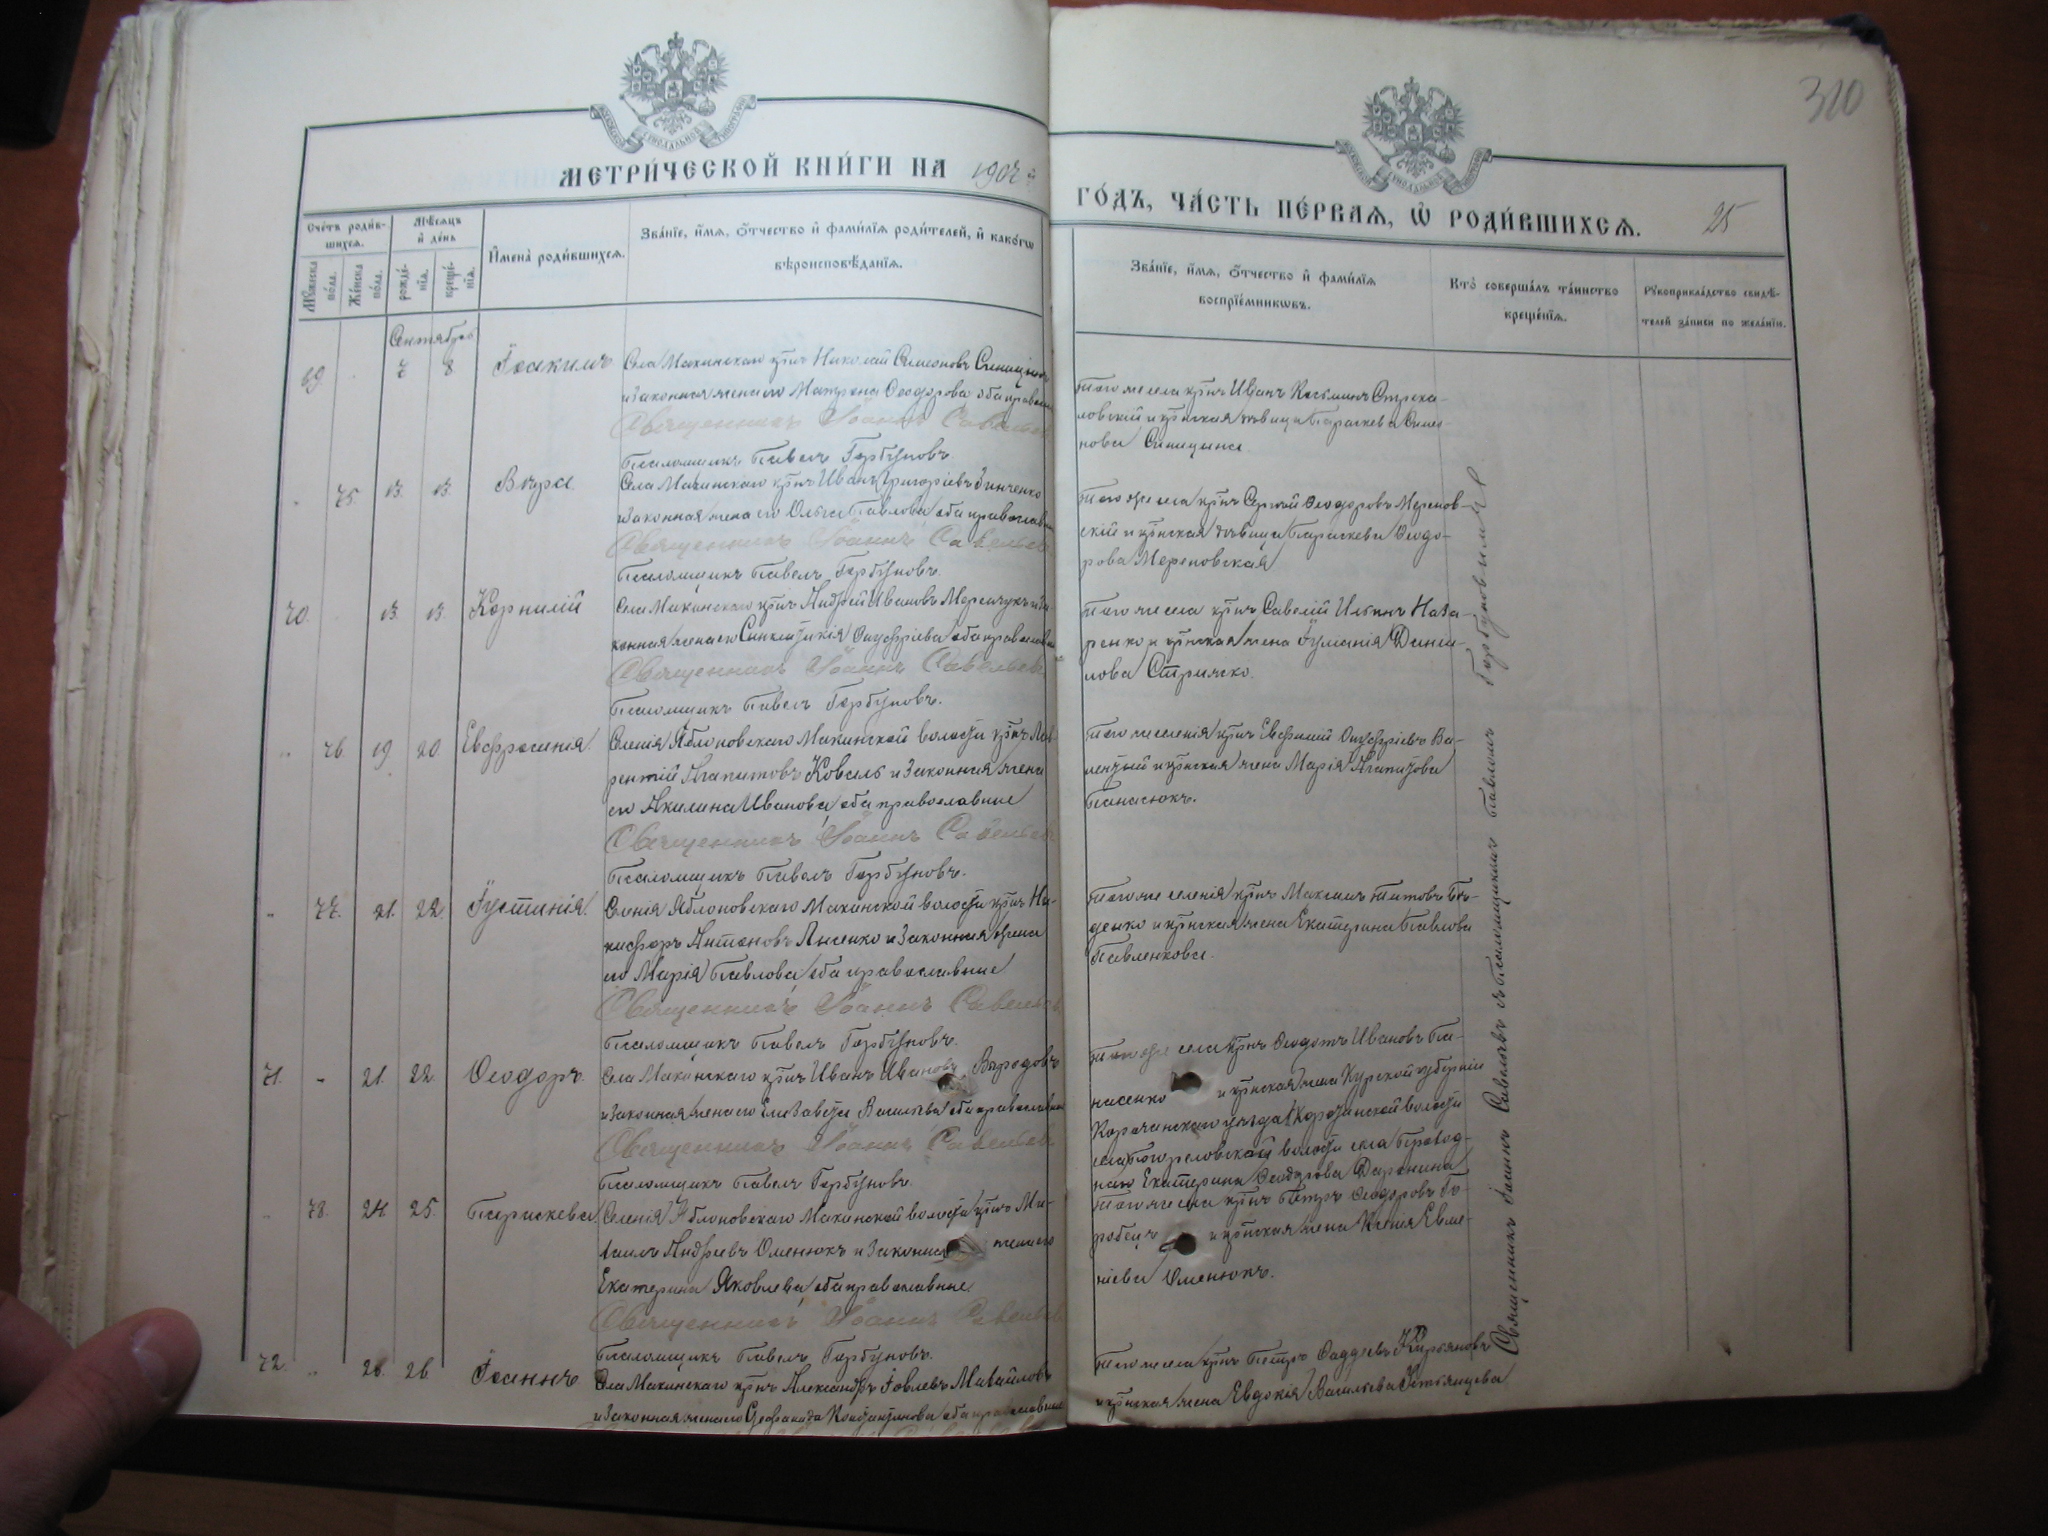 МЕТРИ́ЧЕСКОЙ КНИ́ГИ НА 1907
ГО́ДЪ, ЧА́СТЬ ПЕ́РВАЯ, Ѡ РОДИ́ВШИХСЯ.
25
310
Сче́тъ роди́в-
шихся.
Мѣ́сяцъ
и де́нь
Имена̀ роди́вшихся.
Зва́нїе, и́мя, о́тчество и фами́лїя роди́телей, и како́гѡ
вѣроисповѣ́данїя.
Зва́нїе, и́мя, о́тчество и фами́лїя
воспрїе́мникѡвъ.
Кто̀ соверша́лъ та́инство
креще́нїя.
Рꙋкоприкла́дство свидѣ́-
телей за́писи по жела́нїю.
Мꙋ́жеска
по́ла.
Же́нска
по́ла.
рожде́-
нїя.
креще́-
нїя.
Сентябрь
69 7 8 Іоакимъ
Села Макинскаго кр̃нъ Николай Симеоновъ Синицынъ
и законная жена его Матрона Ѳеодорова оба правосл
Священникъ Іоаннъ Савельев
Псаломщикъ Павелъ Горбуновъ.
того же села кр̃нъ Иванъ Косьминъ Стрека-
ловскій и кр̃нская дѣвица Параскева Симео-
нова Синицына.
75. 13. 13. Вѣра
Села Макинскаго кр̃нъ Иванъ Григоріевъ Зинченко
и законная жена его Ольга Павлова, оба православн
Священникъ Іоаннъ Савельев
Псаломщикъ Павелъ Горбуновъ.
того же села кр̃нъ Сергѣй Ѳеодоровъ Мереновскій
скій и кр̃нская дѣвица Параскева Ѳеодо-
рова Мереновская
70. 13. 13. Корнилій
Села Макинскаго кр̃нъ Андрей Ивановъ и за-
конная жена его Синклитикія Онуфріева оба православн
Священникъ Іоаннъ Савельев
Псаломщикъ Павелъ Горбуновъ.
того же села кр̃нъ Савелій Ильинъ Наза-
ренко и кр̃нская жена Іуліанія Дани-
лова Стрижко.
76. 19. 20 Евфросинія.
Селенія Яблоновскаго Макинской волости кр̃нъ Лав
рентій Агапитовъ Коваль и законная жена
его Акилина Иванова, оба православные
Священникъ Іоаннъ Савельев
Псаломщикъ Павелъ Горбуновъ.
того же селенія кр̃нъ Евфимій Онуфріевъ Ва-
и кр̃нская жена Марія Агапитова
Панасюкъ.
77. 21. 22. Іустинія.
Селенія Яблоновскаго Макинской волости кр̃нъ Ни-
кифоръ Антоновъ Лысенко и законная жена
его Марія Павлова, оба православные
Священникъ Іоаннъ Савельев
Псаломщикъ Павелъ Горбуновъ.
того же селенія кр̃нъ Максимъ Титовъ
и кр̃нская жена Екатерина Павлова
Павленкова.
71. 21. 22. Ѳеодоръ.
Села Макинскаго кр̃нъ Иванъ Ивановъ
и законная жена его Елизавета Васильева оба православн
Священникъ Іоаннъ Савельев
Псаломщикъ Павелъ Горбуновъ.
того же села кр̃нъ Ѳеодотъ Ивановъ Па-
насенко и кр̃нская жена Курской губерніи
Корочанскаго уѣзда Корочанской волости
волости села
Екатерина Ѳеодорова
78. 24. 25. Параскева.
Селенія Яблоновскаго Макинской волости кр̃нъ Ми-
хаилъ Андреевъ Оменюкъ и законная жена его
Екатерина Яковлева, оба православные.
Священникъ Іоаннъ Савельев
Псаломщикъ Павелъ Горбуновъ.
того же села кр̃нъ Петръ Ѳеодоровъ Го-
робецъ и кр̃нская жена Ксенія Евме-
ніева Оменюкъ.
72. 26. 26 Іоаннъ
Села Макинскаго кр̃нъ Александръ Іовлевъ Михайловъ
и законная жена его Константинова оба православные
того же села кр̃нъ Петръ Ѳаддеевъ Кирьяновъ
и кр̃нская жена Евдокія Васильева
Священникъ Іоаннъ Савельевъ съ Псаломщикомъ Павломъ Горбуновымъ